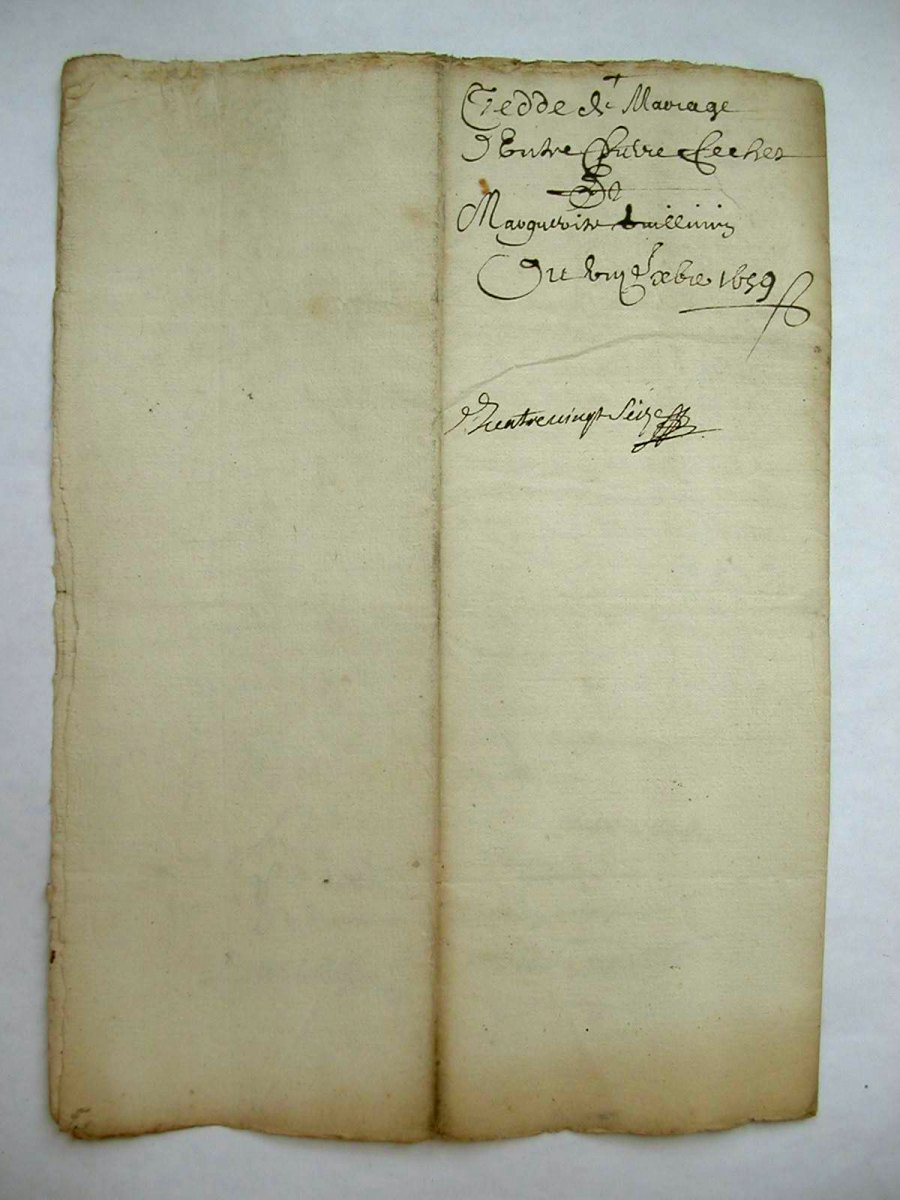 Tedde de Mariage
D'Entre Pierre Techer
Et
Marguerite Vuillimin
Du viij Xbre 1659
Quatrevingt Seize